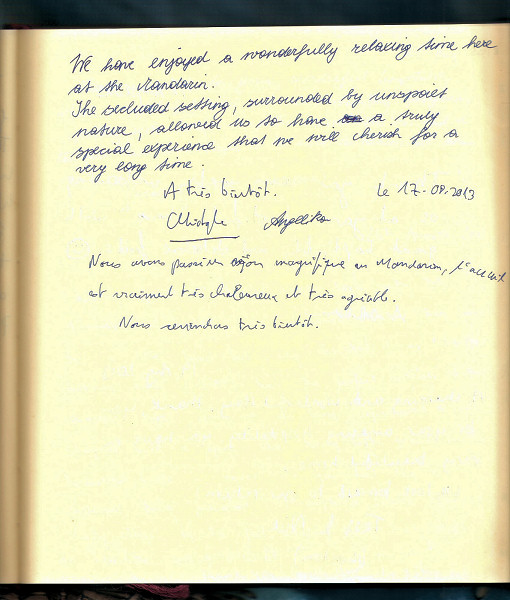 We have enjoyed a wonderfully relaxing time here
at the Mandarin.
The secluded setting, surrounded by unspoilt
nature, allowed us to have a truly
special experience that we will cherish for a
very long time.
A très bientôt. Le 17-08-2013
Christophe Angelika
Nous avons passé un séjour magnifique au Mandarin, l'accueil
est vraiment très chaleureux et très agréable.
Nous reviendrons très bientôt.